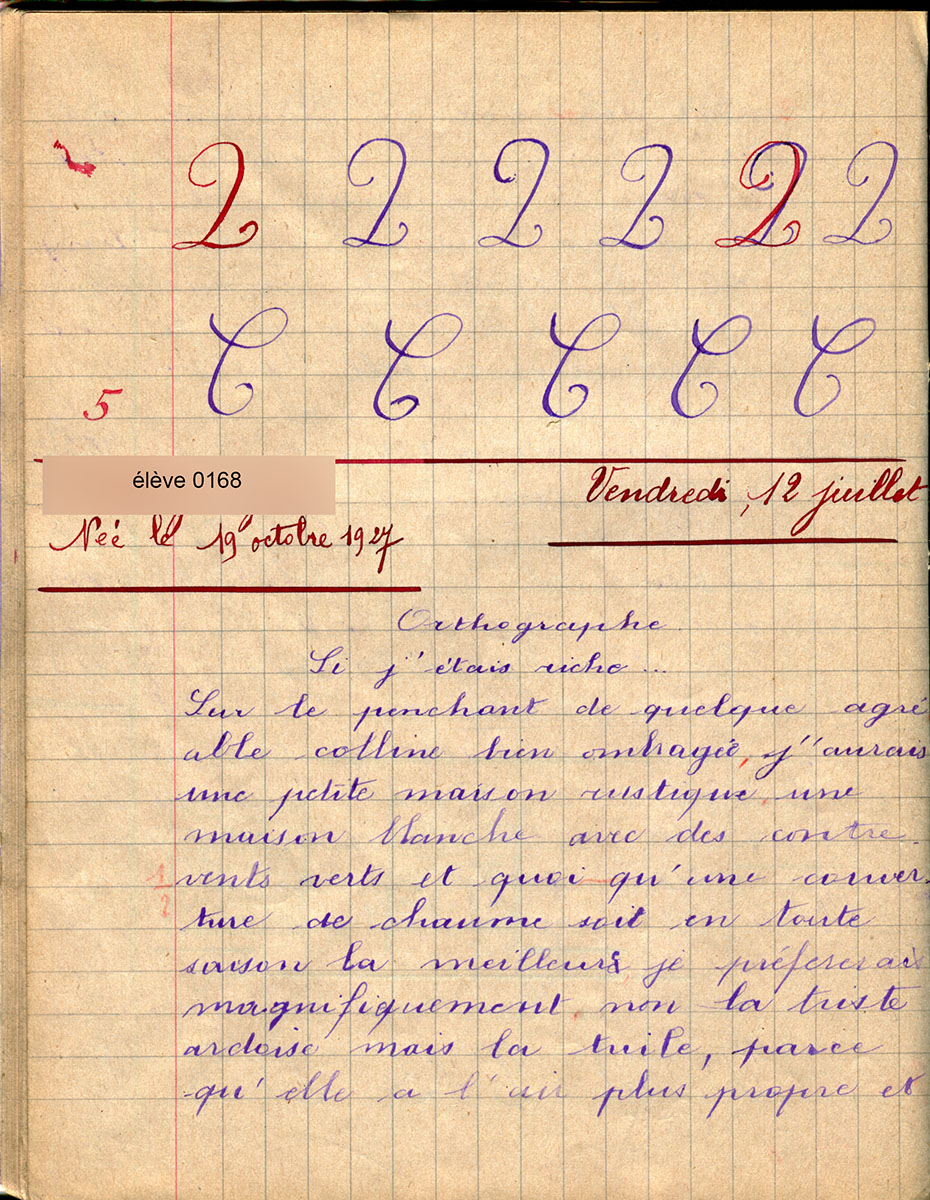 2 2 2 2 2 2
5 C C C C C
élève 0168
Vendredi, 12 juillet
Née le 19 octobre 1927
Orthographe
Si j'étais riche...
Sur le penchant de quelque agré
able colline bien ombragée, j'aurais
une petite maison rustique une
maison blanche avec des contre.
vents verts et quoi qu'une couver-
1/2
ture de chaume soit en toute
saison la meilleure je préfererais
magnifiquement non la triste
ardoise mais la tuile, parce
qu'elle a l'air plus propre et